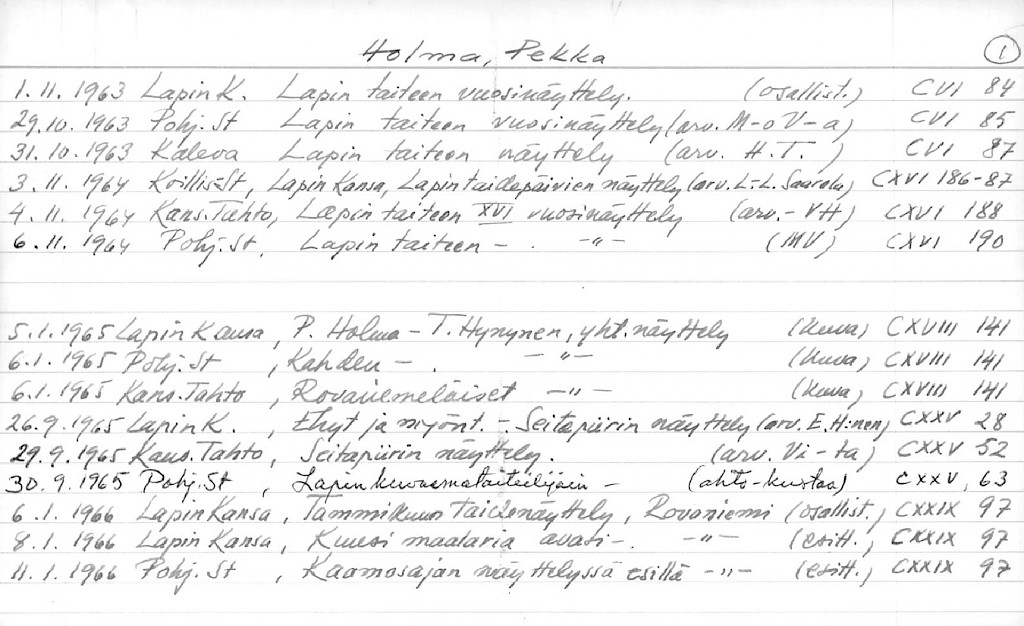 Holma, Pekka ①
1.11.1963 Lapin K. Lapin taiteen vuosinäyttely. (osallist.) CVI 84
29.10.1963 Pohj. St Lapin taiteen vuosinäyttely (arv. M-o V-a) CVI 85
31.10.1963 Kaleva Lapin taiteen näyttely (arv. H.T.) CVI 87
3.11.1964 Koillis-St, Lapin Kansa, Lapin taidepäivien näyttely (arv. L-L. Saarela) CXVI 186-87
4.11.1964 Kans.Tahto, Lapin taiteen XVI vuosinäyttely (arv.- VH) CXVI 188
6.11.1964 Pohj. St, Lapin taiteen - . -"- (MV) CXVI 190
5.1.1965 Lapin Kansa, P. Holma - T. Hynynen, yht. näyttely (kuva) CXVIII 141
6.1.1965 Pohj. St, Kahden - . -"- (kuva) CXVIII 141
6.1.1965 Kans. Tahto, Rovaniemeläiset -"- (kuva) CXVIII 141
26.9.1965 Lapin K., Ehyt ja myönt. - Seitapiirin näyttely (arv. E.H:nen) CXXV 28
29.9.1965 Kans. Tahto, Seitapiirin näyttely. (arv. Vi-ta) CXXV 52
30.9.1965 Pohj. St, Lapin kuvaamataiteilijain - (ahto-kustaa) CXXV, 63
6.1.1966 Lapin Kansa, Tammikuun Taidenäyttely, Rovaniemi (osallist.) CXXIX 97
8.1.1966 Lapin Kansa, Kuusi maalaria avasi -. -"- (esitt.) CXXIX 97
11.1.1966 Pohj. St, Kaamosajan näyttelyssä esillä -"- (esitt.) CXXIX 97